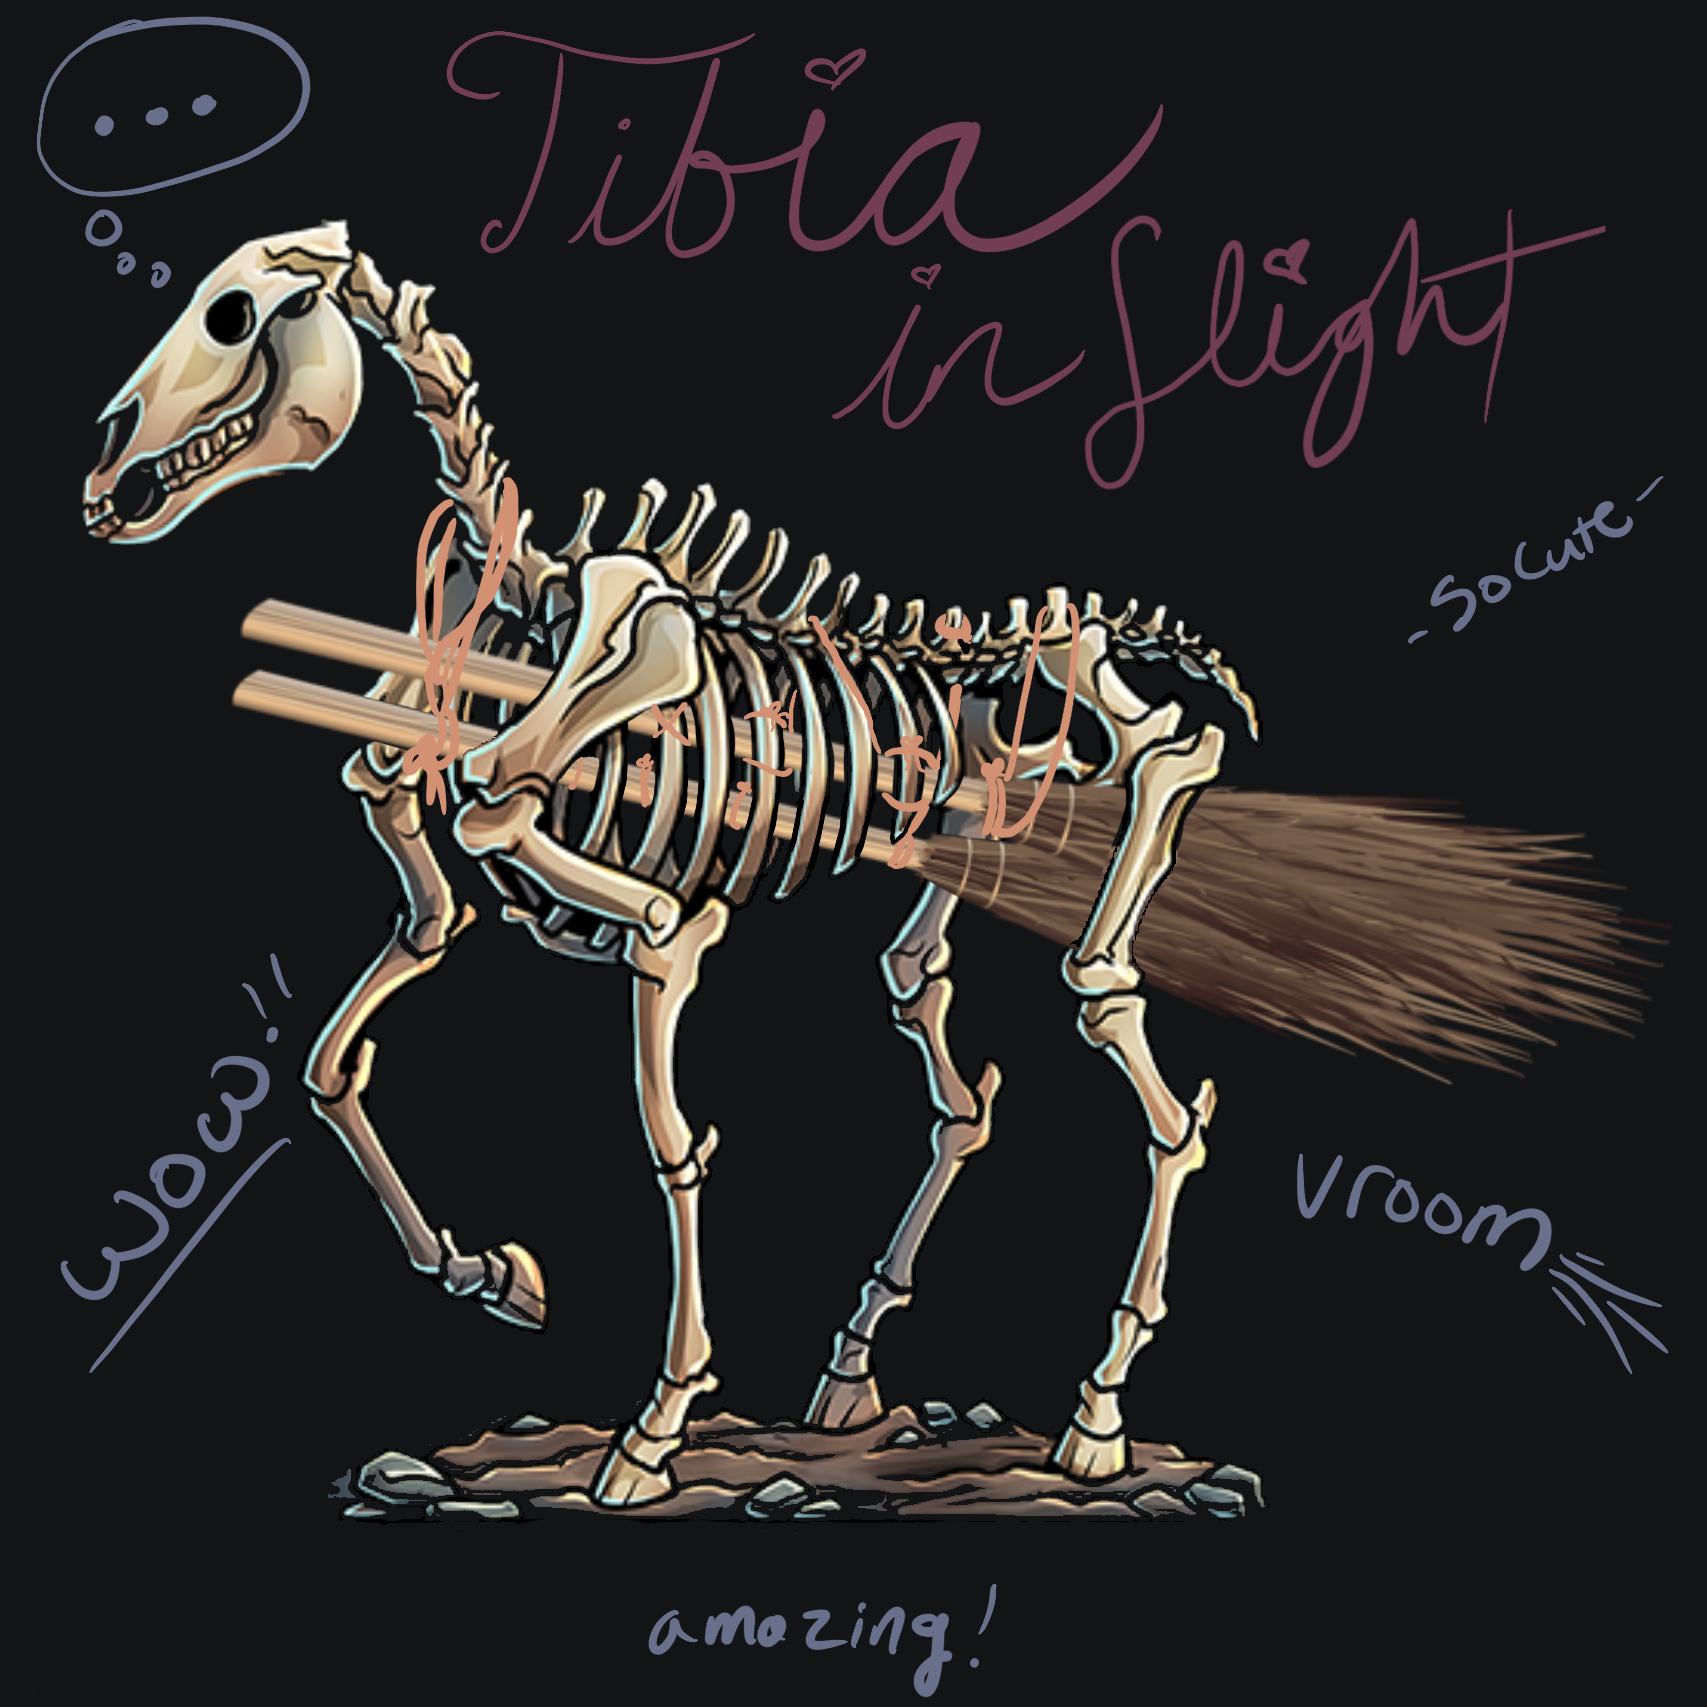 ...
Tibia
in flight
- so cute -
wow!!
vroom
amazing!